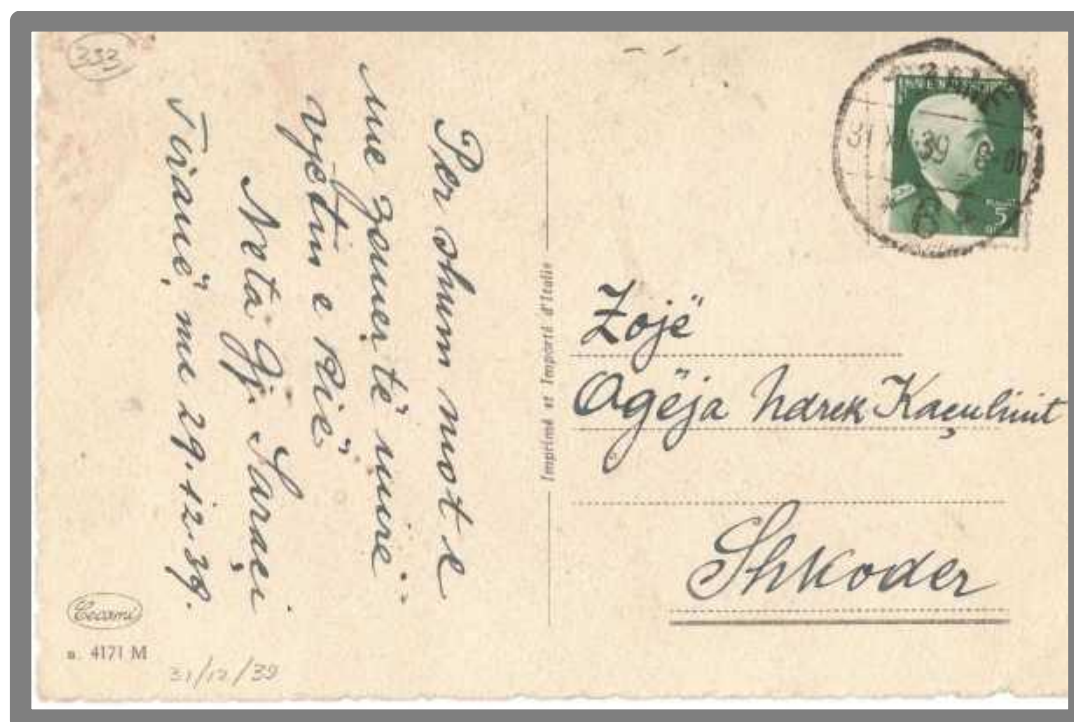 353
Per shum mot e
me zemer të mirë
vjetin e Rië
Neta Gj. Saraçi
Tiranë, më 29.12.39.
Cecami
a. 4171 M
31/12/39
Imprimé et Importé d'Italie
31 XII 39 6-00
5
Zojë
Ogëja Ndrek Kaçulinit
Shkoder